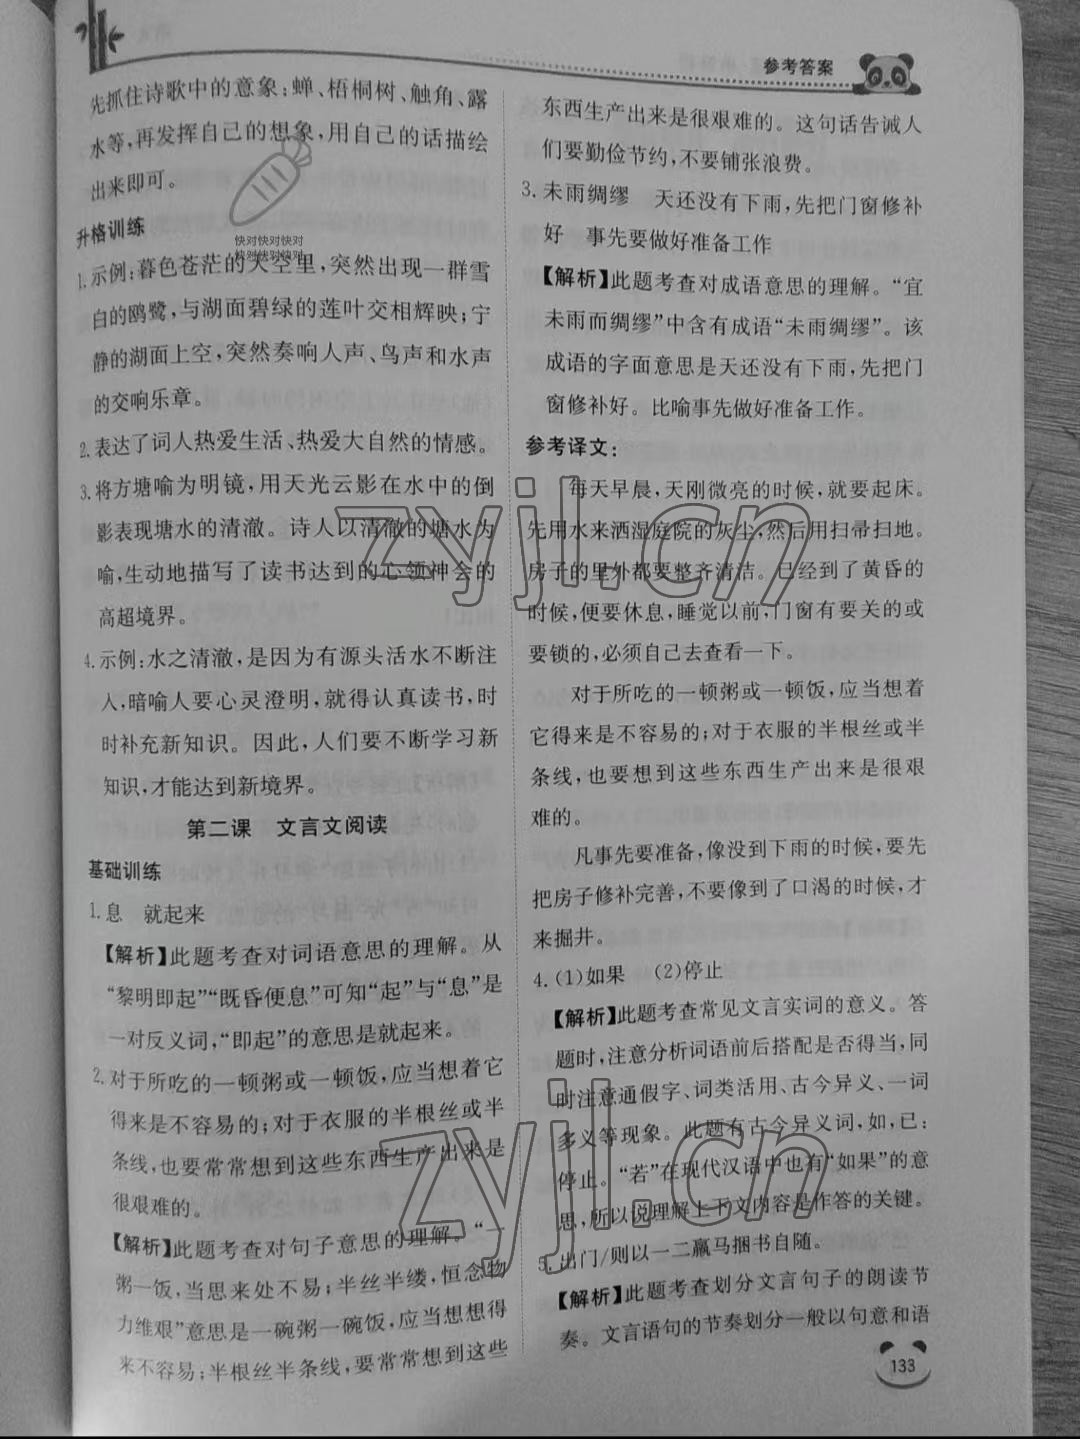 参考答案
先抓住诗歌中的意象:蝉、梧桐树、触角、露
水等,再发挥自己的想象,用自己的话描绘
出来即可。
升格训练
1.示例:暮色苍茫的天空里,突然出现一群雪
白的鸥鹭,与湖面碧绿的莲叶交相辉映;宁
静的湖面上空,突然奏响人声、鸟声和水声
的交响乐章。
2.表达了词人热爱生活、热爱大自然的情感。
3.将方塘喻为明镜,用天光云影在水中的倒
影表现塘水的清澈。诗人以清澈的塘水为
喻,生动地描写了读书达到的心领神会的
高超境界。
4.示例:水之清澈,是因为有源头活水不断注
入,暗喻人要心灵澄明,就得认真读书,时
时补充新知识。因此,人们要不断学习新
知识,才能达到新境界。
第二课 文言文阅读
基础训练
1.息 就起来
【解析】此题考查对词语意思的理解。从
“黎明即起”“既昏便息”可知“起”与“息”是
一对反义词,“即起”的意思是就起来。
2.对于所吃的一顿粥或一顿饭,应当想着它
得来是不容易的;对于衣服的半根丝或半
条线,也要常常想到这些东西生产出来是
很艰难的。
【解析】此题考查对句子意思的理解。“一
粥一饭,当思来处不易;半丝半缕,恒念物
力维艰”意思是一碗粥一碗饭,应当想想得
来不容易;半根丝半条线,要常常想到这些
东西生产出来是很艰难的。这句话告诫人
们要勤俭节约,不要铺张浪费。
3.未雨绸缪 天还没有下雨,先把门窗修补
好 事先要做好准备工作
【解析】此题考查对成语意思的理解。“宜
未雨而绸缪”中含有成语“未雨绸缪”。该
成语的字面意思是天还没有下雨,先把门
窗修补好。比喻事先做好准备工作。
参考译文:
每天早晨,天刚微亮的时候,就要起床。
先用水来洒湿庭院的灰尘,然后用扫帚扫地。
房子的里外都要整齐清洁。已经到了黄昏的
时候,便要休息,睡觉以前,门窗有要关的或
要锁的,必须自己去查看一下。
对于所吃的一顿粥或一顿饭,应当想着
它得来是不容易的;对于衣服的半根丝或半
条线,也要想到这些东西生产出来是很艰
难的。
凡事先要准备,像没到下雨的时候,要先
把房子修补完善,不要像到了口渴的时候,才
来掘井。
4.(1)如果 (2)停止
【解析】此题考查常见文言实词的意义。答
题时,注意分析词语前后搭配是否得当,同
时注意通假字、词类活用、古今异义、一词
多义等现象。此题有古今异义词,如,已:
停止。“若”在现代汉语中也有“如果”的意
思,所以说理解上下文内容是作答的关键。
5.出门/则以一二赢马捆书自随。
【解析】此题考查划分文言句子的朗读节
奏。文言语句的节奏划分一般以句意和语
133
快对快对快对
快对快对快对
zyjl.cn
zyjl.cn